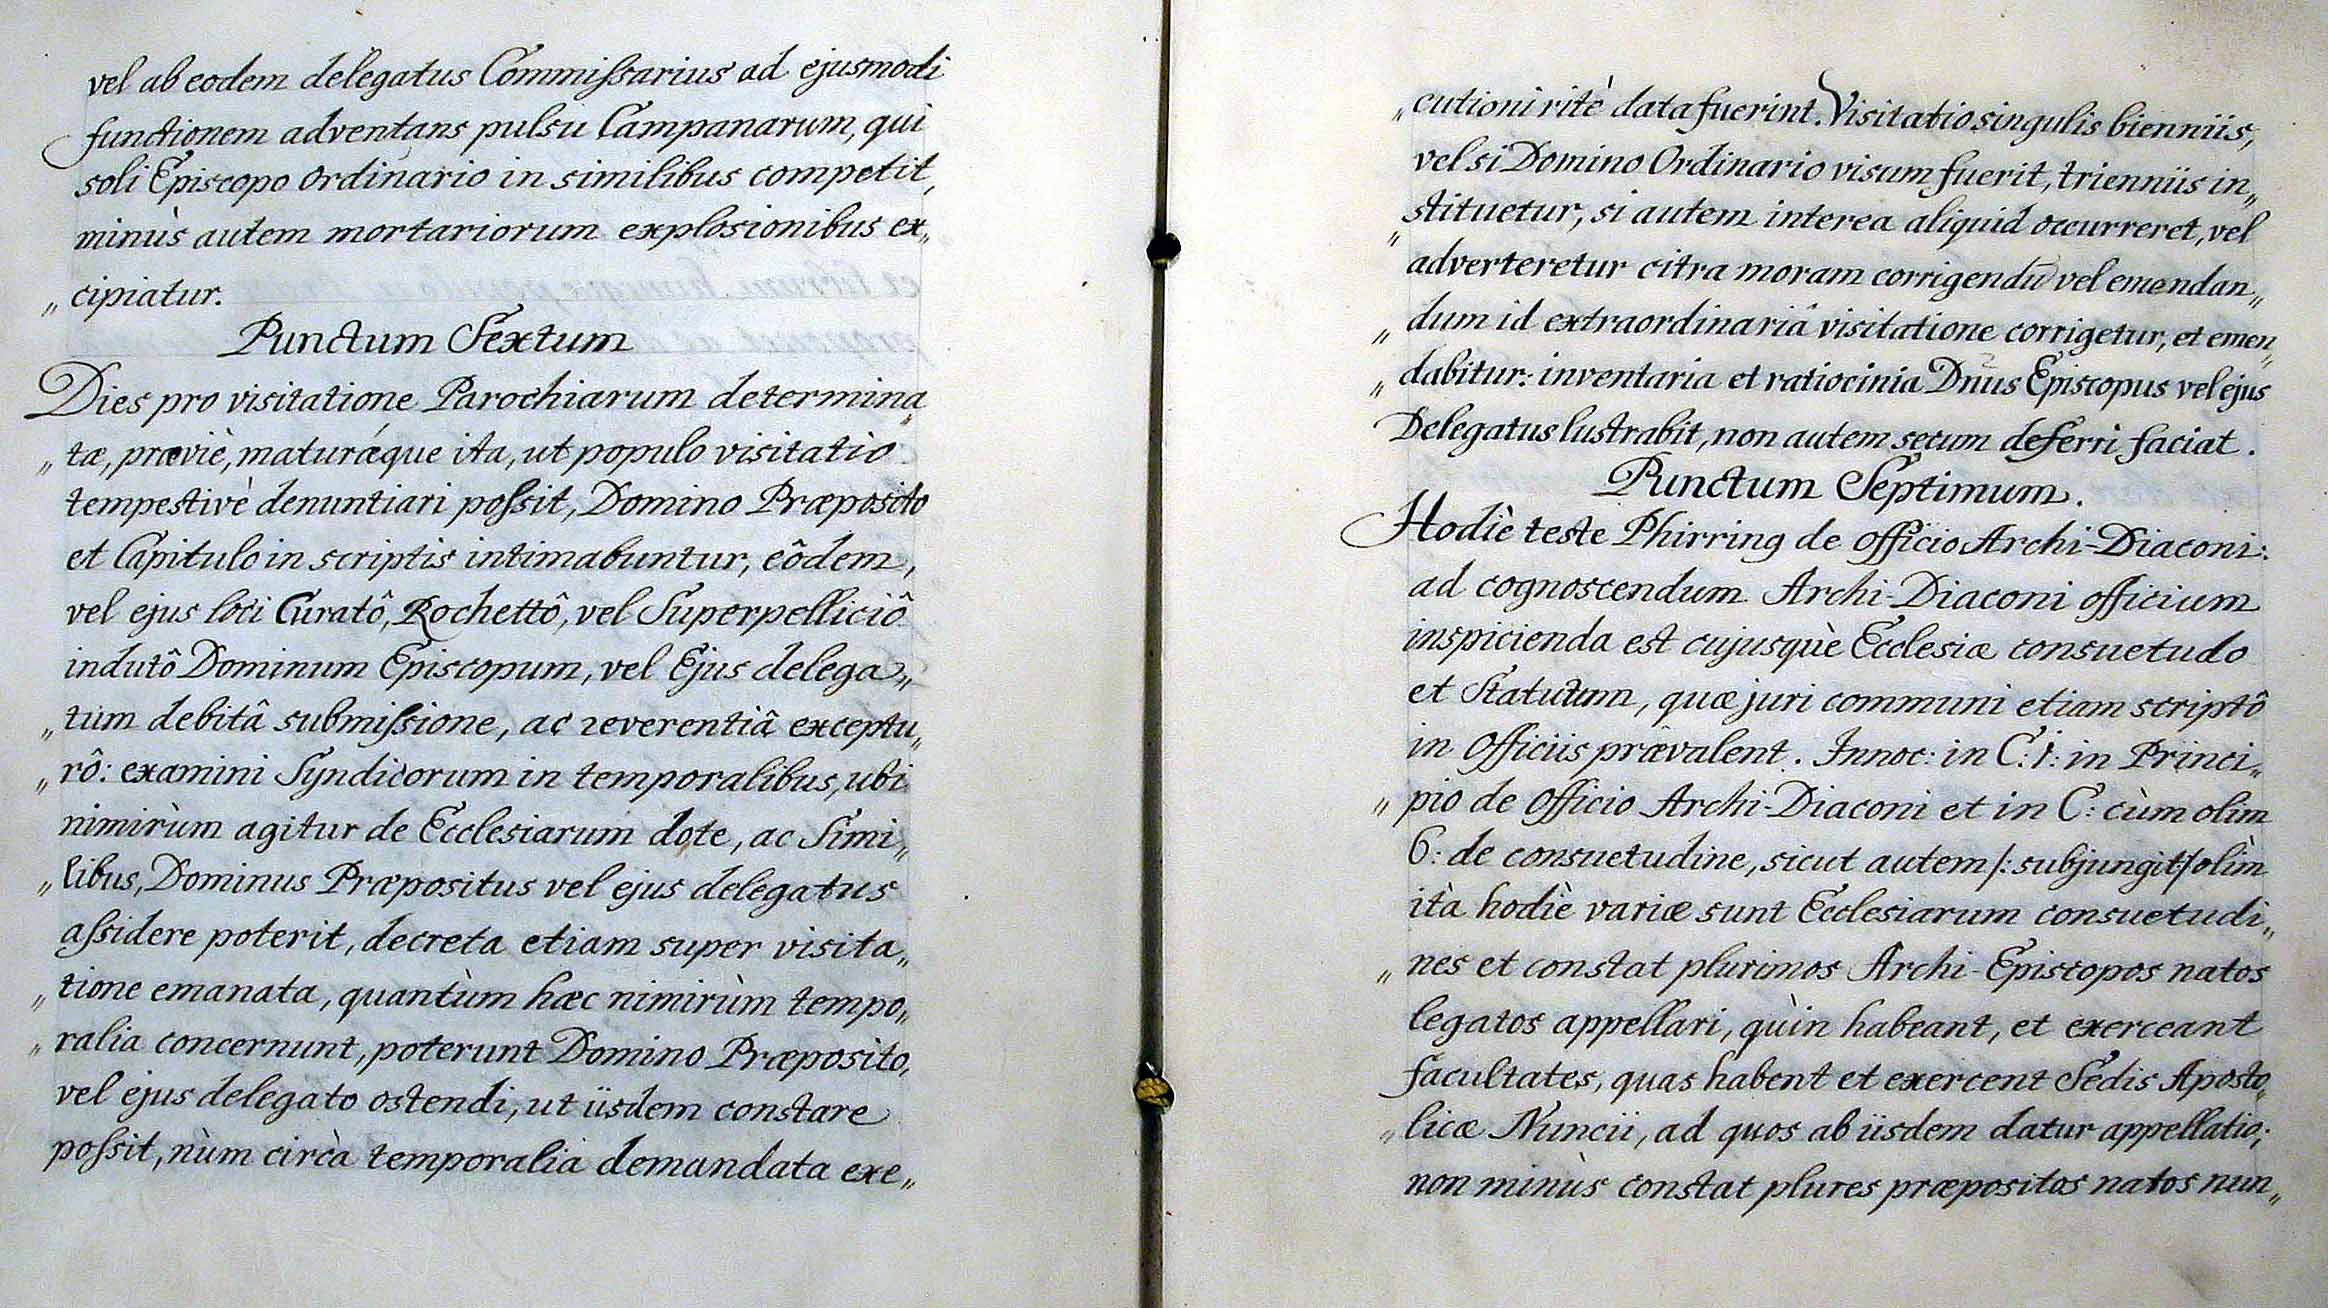 vel ab eodem delegatus Commissarius ad ejusmodi
functionem adventans pulsu Campanarum, qui
soli Episcopo Ordinario in similibus competit,
minùs autem mortariorum explosionibus ex„
„cipiatur.
Punctum Sextum
Dies pro visitatione Parochiarum determina„
„tæ, præviè, maturáque ita, ut populo visitatio
tempestivè denuntiari possit, Domino Præposito
et Capitulo in scriptis intimabuntur, eôdem,
vel ejus loci Curatô, Rochettô, vel Superpelliciô
indutô Dominum Episcopum, vel Ejus delega„
„tum debitâ submissione, ac reverentiâ exceptu„
„rô: examini Syndicorum in temporalibus, ubi
nimirùm agitur de Ecclesiarum dote, ac Simi„
„libus, Dominus Præpositus vel ejus delegatus
assidere poterit, decreta etiam super visita„
„tione emanata, quantùm hæc nimirùm tempo„
„ralia concernunt, poterunt Domino Præposito,
vel ejus delegato ostendi, ut iisdem constare
possit, nùm circà temporalia demandata exe„
„cutioni ritè data fuerint. Visitatio singulis bienniis,
vel si Domino Ordinario visum fuerit, trienniis in„
„stituetur, si autem interea aliquid occurreret, vel
adverteretur citra moram corrigendū vel emendan„
„dum id extraordinariâ visitatione corrigetur, et emen„
„dabitur: inventaria et ratiocinia Dn̄us Episcopus vel ejus
Delegatus lustrabit, non autem secum deferri faciat.
Punctum Septimum.
Hodiè teste Phirring de officio Archi-Diaconi:
ad cognoscendum Archi-Diaconi officium
inspicienda est cujusquè Ecclesiæ consuetudo
et Statutum, quæ juri communi etiam scriptô
in Officiis prævalent. Innoc: in C: 1: in Princi„
„pio de Officio Archi-Diaconi et in C: cùm olim
6: de consuetudine, sicut autem /: subjungit/ olìm
ità hodiè variæ sunt Ecclesiarum consuetudi„
„nes et constat plurimos Archi-Episcopos natos
legatos appellari, quìn habeant, et exerceant
facultates, quas habent et exercent Sedis Aposto„
„licæ Nuncii, ad quos ab iisdem datur appellatio;
non minùs constat plures præpositos natos nun„